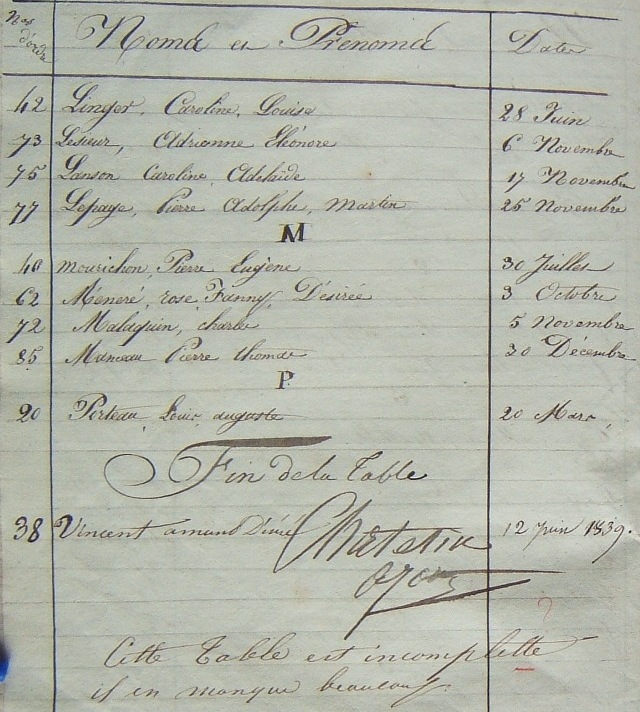 Nos d'ordre Noms et Prénoms Dates
42 Linger, Caroline, Louise 28 Juin
73 Lesueur, Adrianne Eléonore 6 Novembre
75 Lanson Caroline Adelaïde 17 Novembre
77 Lepage, Pierre Adolphe, Martin 25 Novembre
M
40 mourichon, Pierre Eugène 30 Juillet
62 Méneré, rose, Fanny, Désirée 3 Octobre
72 Malaquin, charles 5 Novembre
85 Manceau Pierre thomas 30 Décembre
P
20 Perteau, Louis, auguste 20 Mars,
Fin de la Table
38 Vincent amand Désiré 12 Juin 1839.
Cette Table est incomplette
il en manque beaucoup.